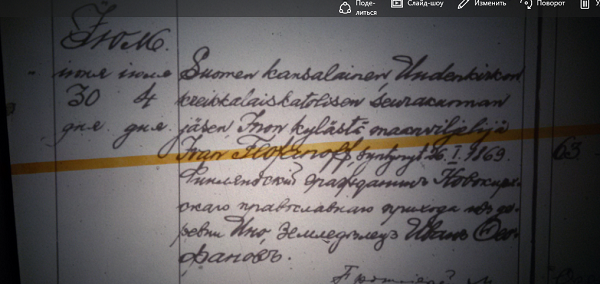 Поде-
литься
Слайд-шоу
Изменить
Поворот
Іюль.
іюня іюля Suomen kansalainen, Uudenkirkon
30 4 kreikkalaiskatolisen seurakunnan
дня дня jäsen Inon kylästä maanviljelijä
Ivan Feofanoff, syntynyt 26.I.1869. 63
Финляндскій гражданинъ Новокирк-
скаго православнаго прихода изъ де-
ревни Ино, земледѣлецъ Иванъ Ѳео-
фановъ.